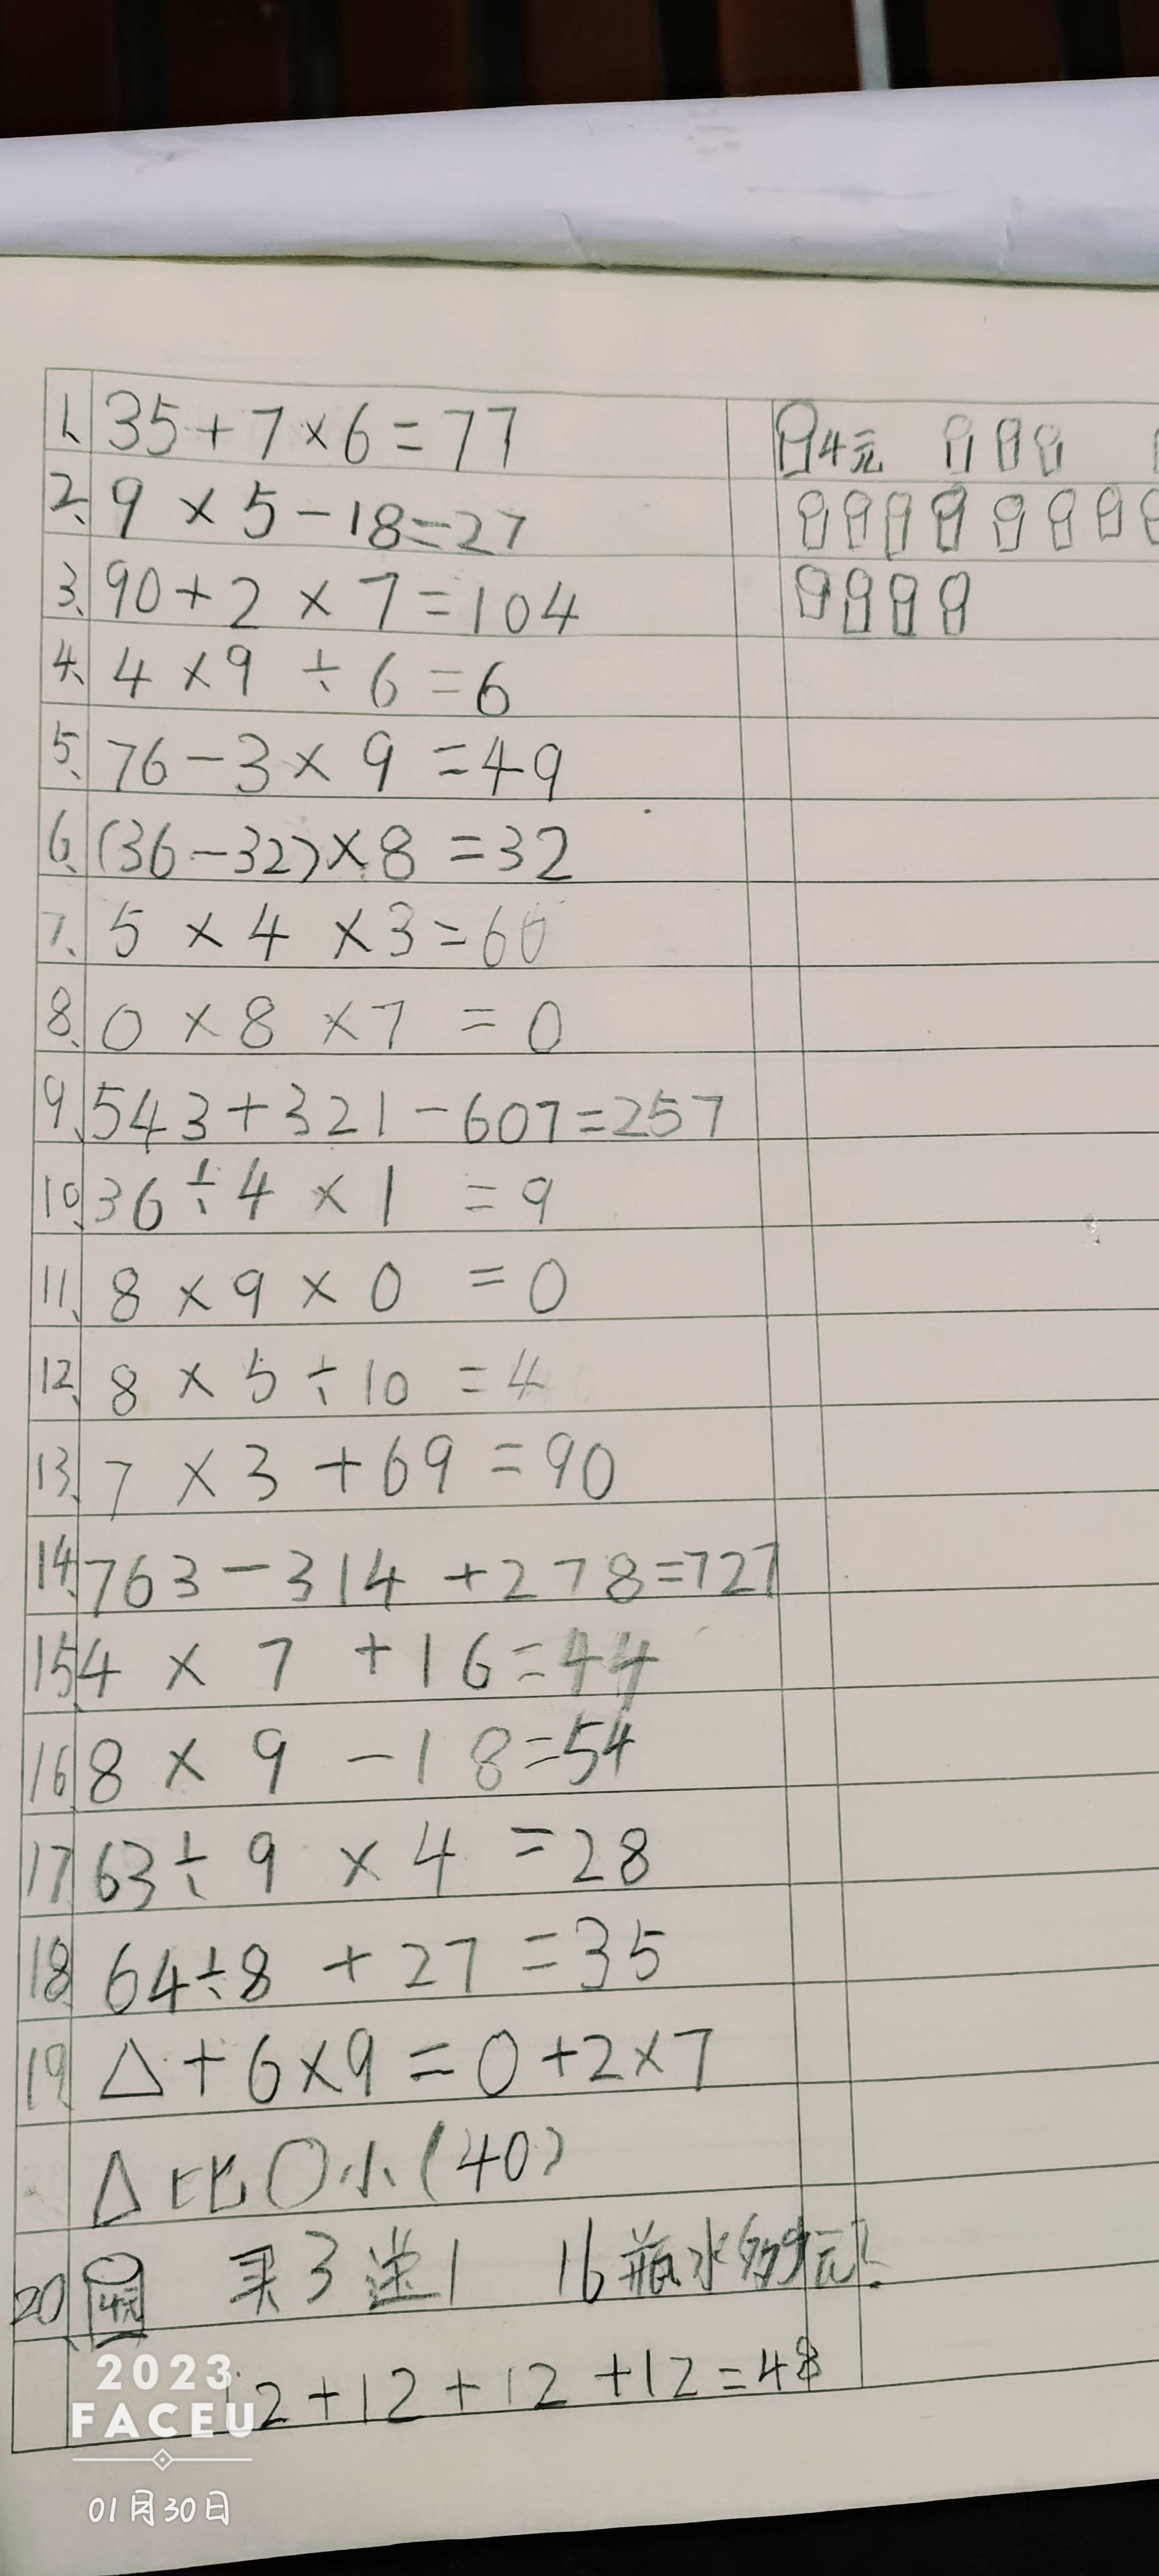 1、35+7×6=77
4元
2、9×5-18=27
3、90+2×7=104
4、4×9÷6=6
5、76-3×9=49
6、(36-32)×8=32
7、5×4×3=60
8、0×8×7=0
9、543+321-607=257
10、36÷4×1=9
11、8×9×0=0
12、8×5÷10=4
13、7×3+69=90
14、763-314+278=727
15、4×7+16=44
16、8×9-18=54
17、63÷9×4=28
18、64÷8+27=35
19、△+6×9=○+2×7
△比○小(40)
20、4元 买3送1 16瓶水多少元?
12+12+12+12=48
2023
FACEU
01月30日